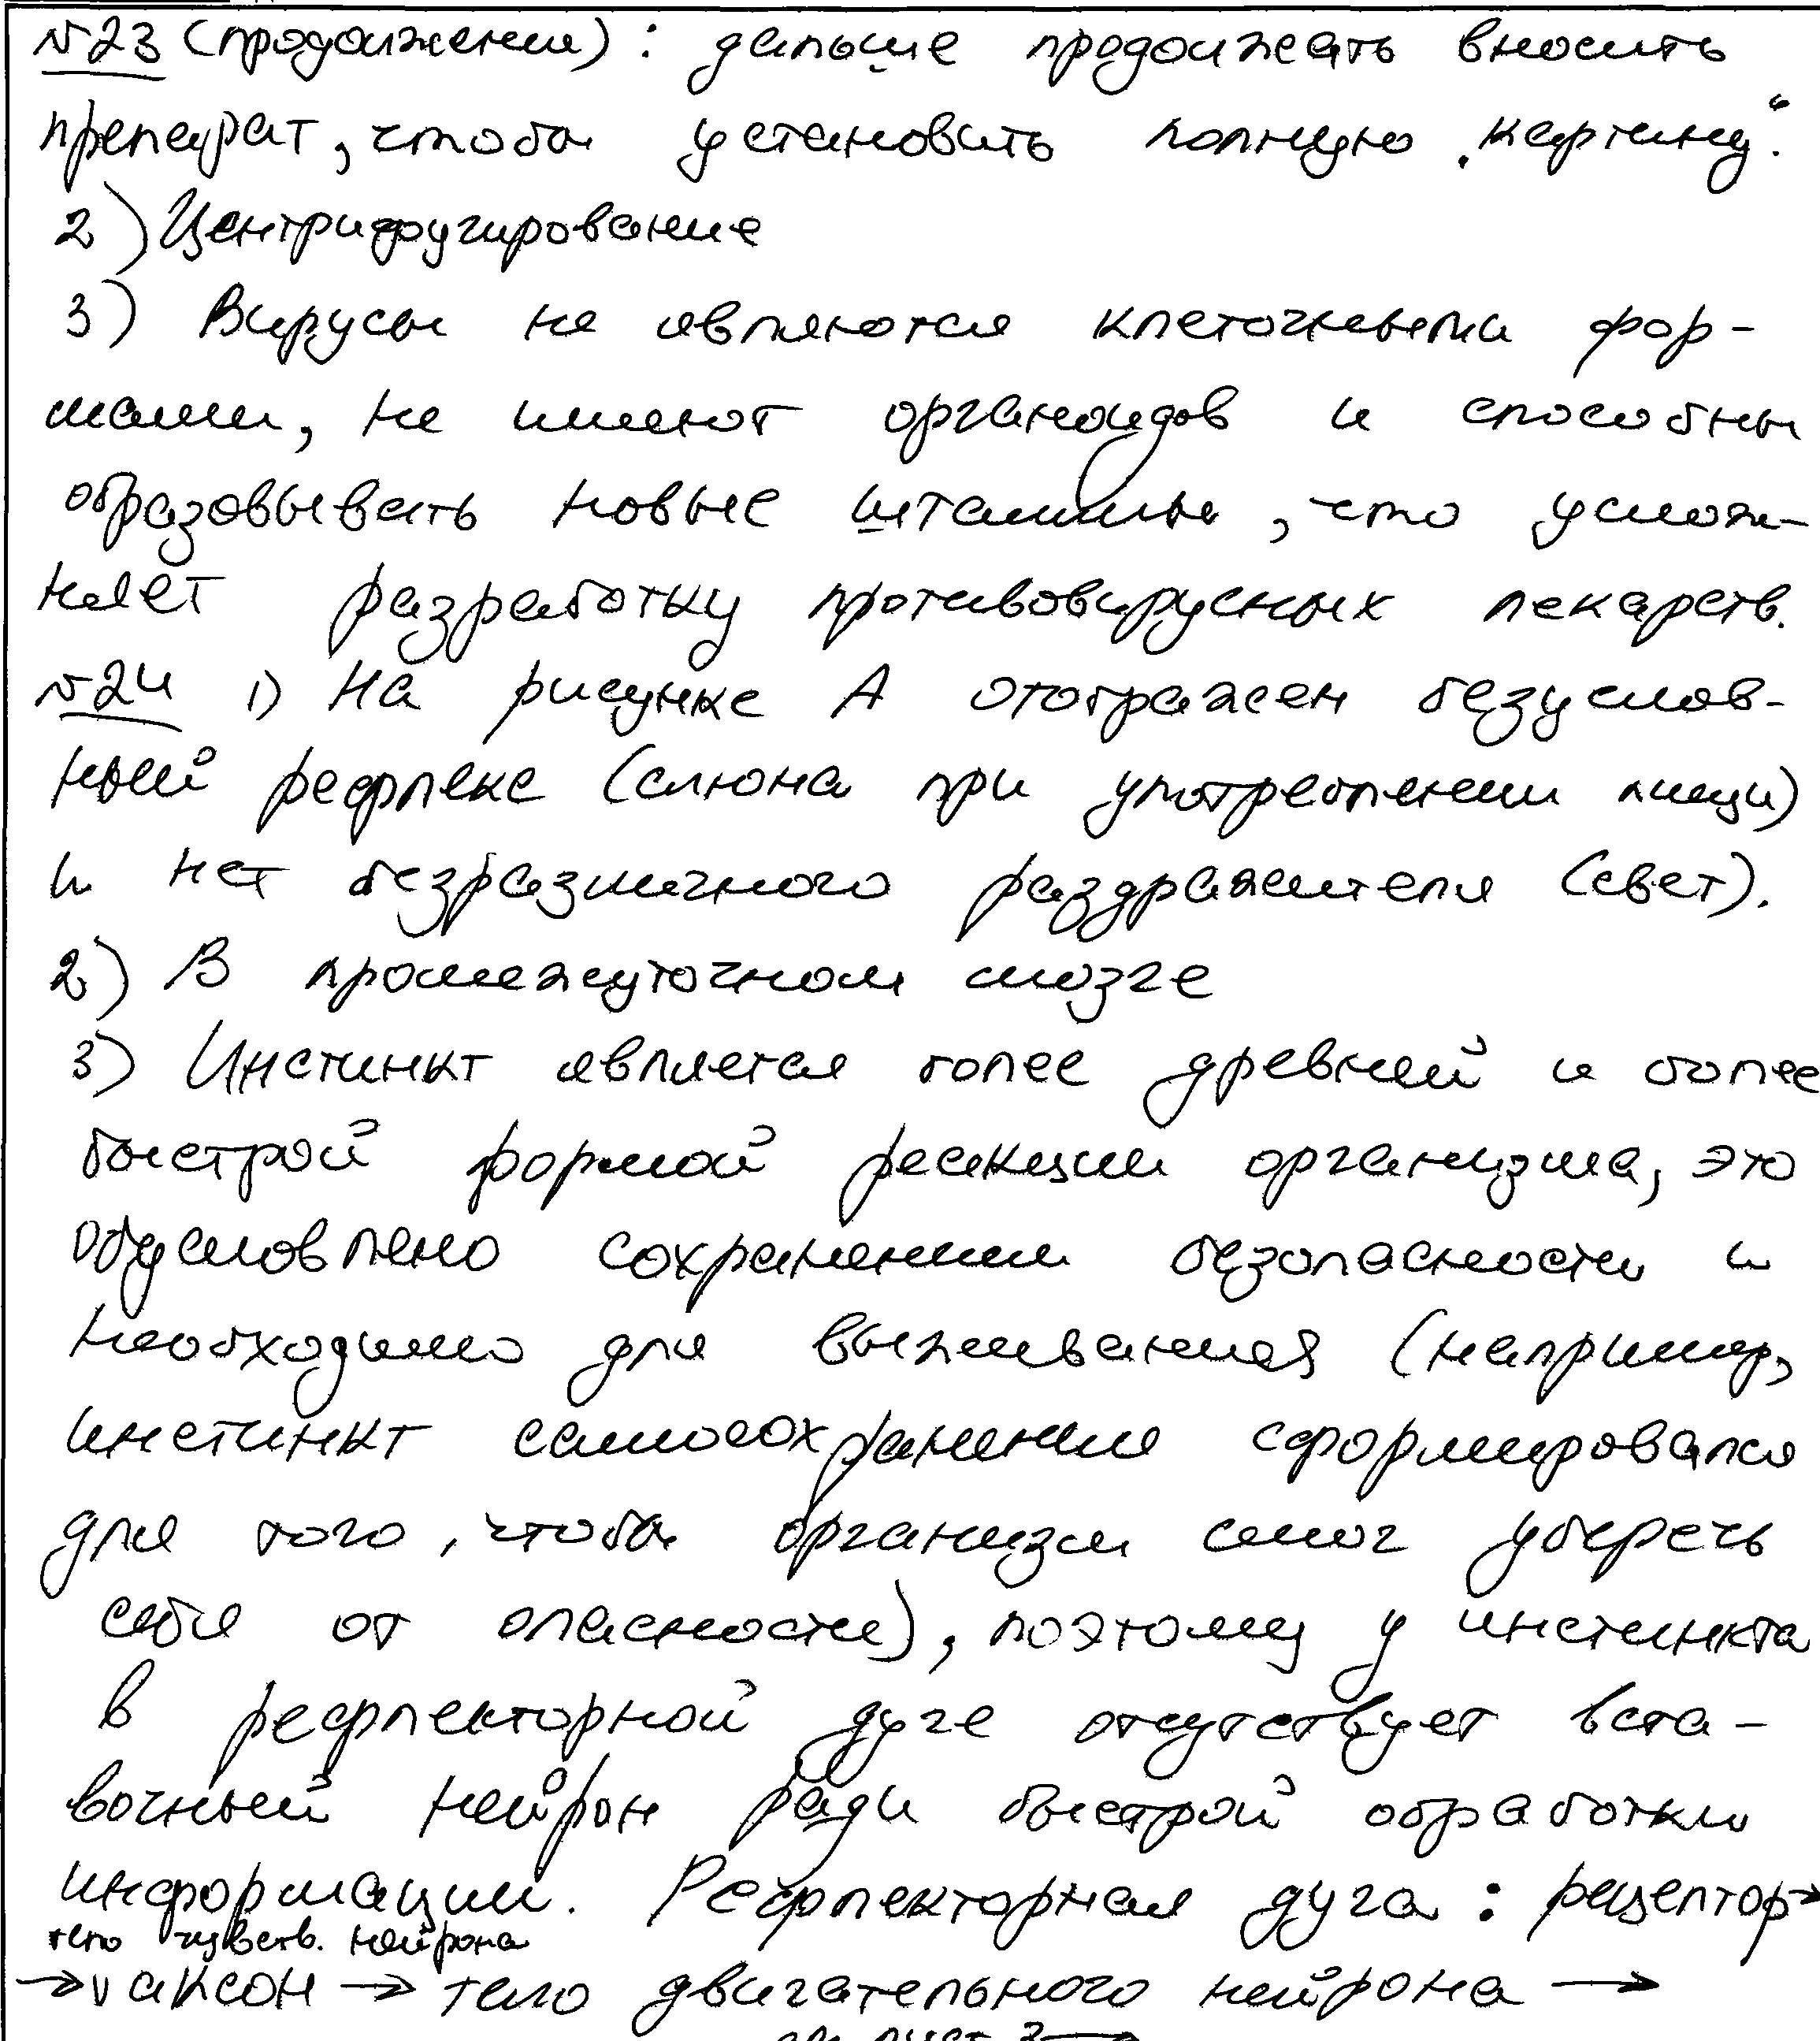 №23 (продолжение): дальше продолжать вносить
препарат, чтобы установить полную „картину“.
2) Центрифугирование
3) Вирусы не являются клеточными фор-
мами, не имеют органоидов и способны
образовывать новые штаммы, что услож-
няет разработку противовирусных лекарств.
№24 1) На рисунке А отображен безуслов-
ный рефлекс (слюна при употреблении пищи)
и нет безразличного раздражителя (свет).
2) В промежуточном мозге
3) Инстинкт является более древней и более
быстрой формой реакции организма, это
обусловлено сохранением безопасности и
необходимо для выживания (например,
инстинкт самосохранения сформировался
для того, чтобы организм смог уберечь
себя от опасности), поэтому у инстинкта
в рефлекторной дуге отсутствует вста-
вочный нейрон ради быстрой обработки
информации. Рефлекторная дуга: рецептор→
тело чувств. нейрона
→ аксон → тело двигательного нейрона →